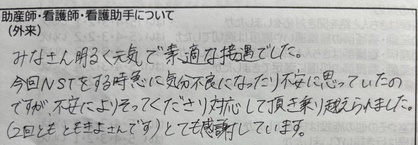 助産師・看護師・看護助手について
(外来)
みなさん明るく元気で素適な接遇でした。
今回NSTをする時急に気分不良になったり不安に思っていたの
ですが、不安によりそってくださり対応して頂き乗り越えられました。
(2回とも ともきよさんです) とても感謝しています。